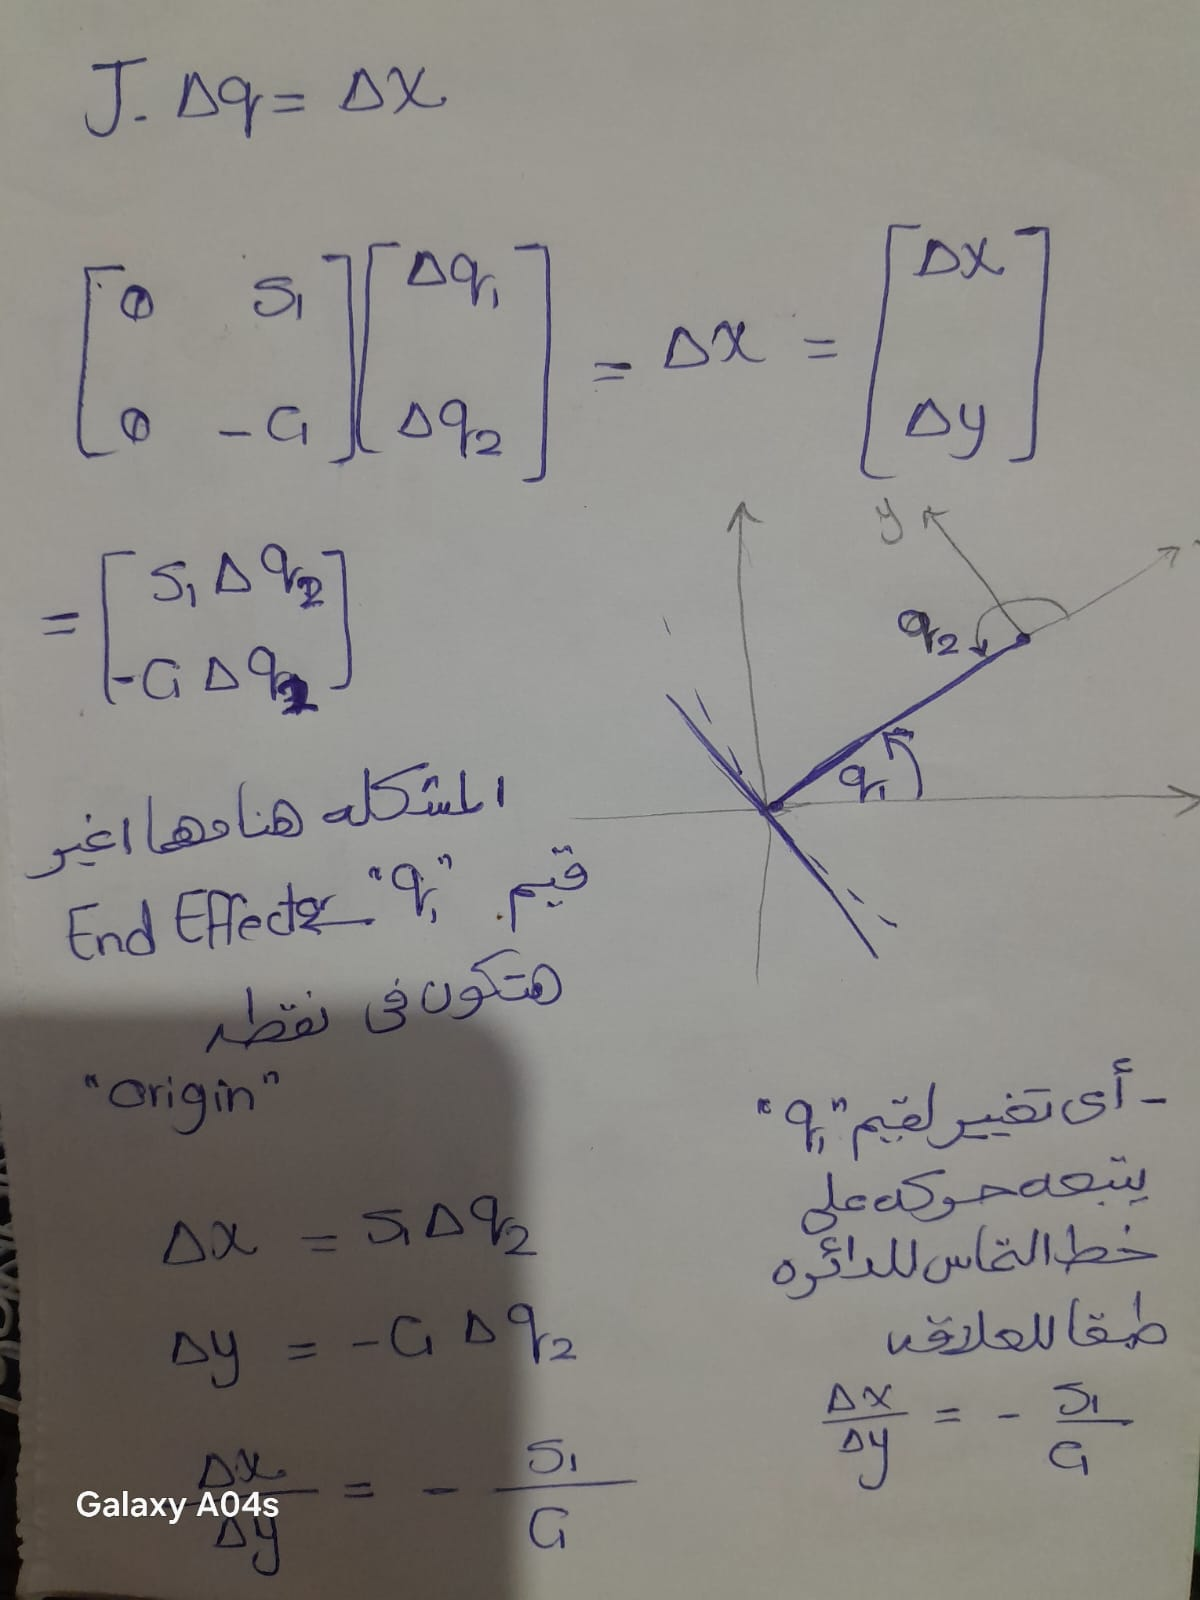 J. Δq = ΔX
[ 0 S₁ ; 0 -C₁ ] [ Δq₁ ; Δq₂ ] = Δx = [ Δx ; Δy ]
= [ S₁ Δq₂ ; -C₁ Δq₂ ]
y
q₂
q₁
المشكله هنا مهما اغير
قيم "q₁" End Effector
هتكون فى نقطه
"origin"
Δx = S₁ Δq₂
Δy = -C₁ Δq₂
Δx/Δy = - S₁/C₁
- أى تغيير لقيم "q₁"
يتبعه حركه على
خط التماس للدائره
طبقا للعلاقه
Δx/Δy = - S₁/C₁
Galaxy A04s